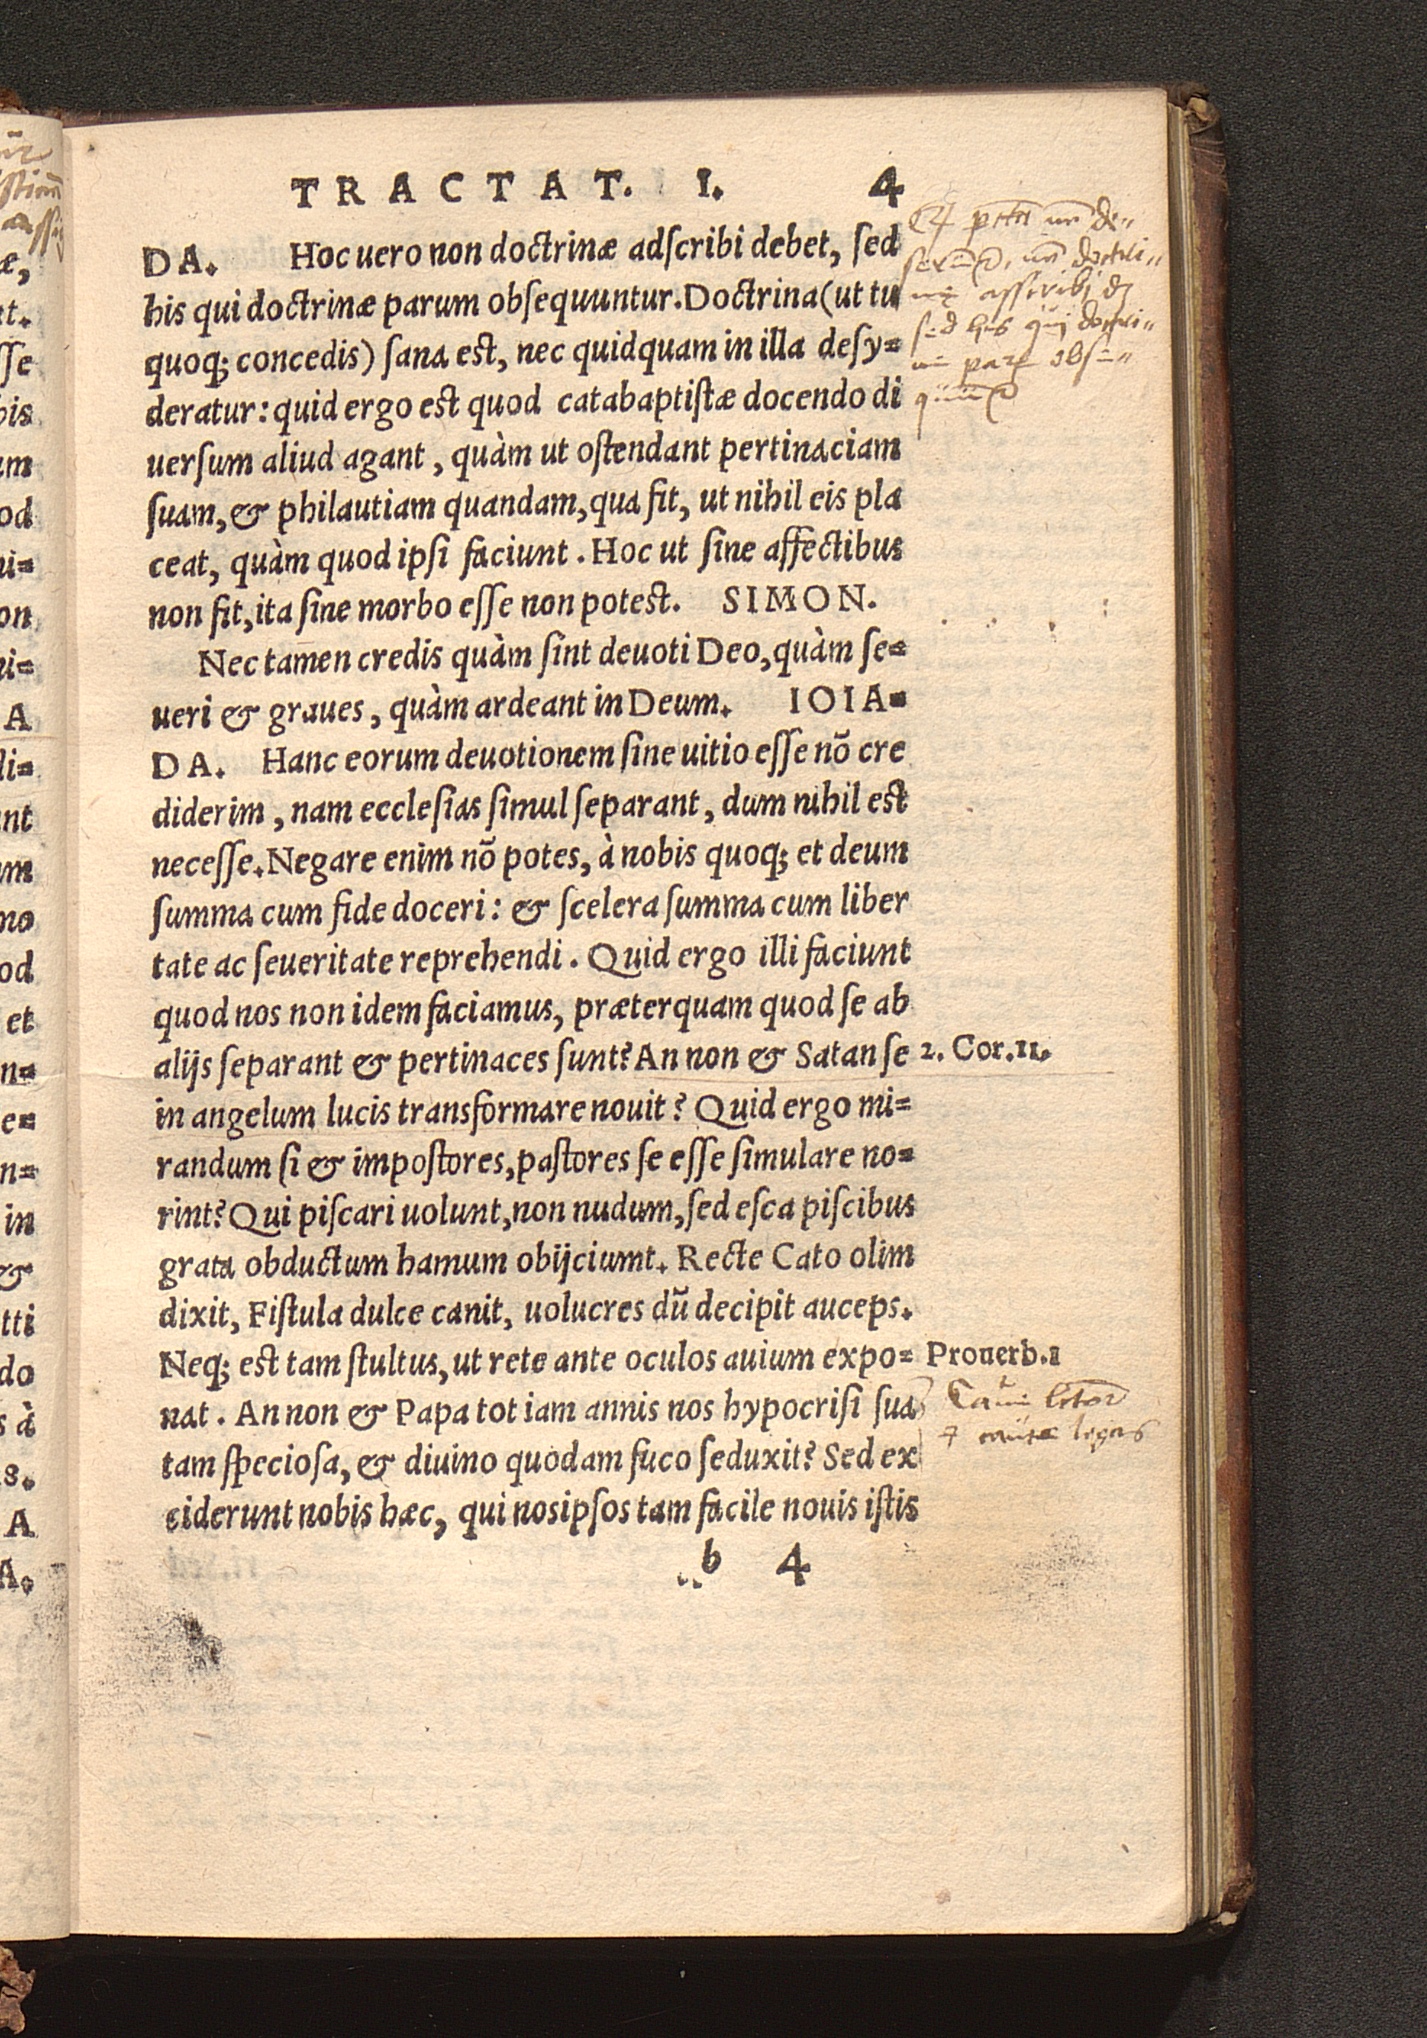 TRACTAT. I. 4
DA. Hoc uero non doctrinæ adſcribi debet, ſed
his qui doctrinæ parum obſequuntur. Doctrina (ut tu
quoq; concedis) ſana est, nec quidquam in illa deſy=
deratur: quid ergo est quod catabaptiſtæ docendo di
uerſum aliud agant, quàm ut oſtendant pertinaciam
ſuam, & philautiam quandam, qua fit, ut nihil eis pla
ceat, quàm quod ipſi faciunt. Hoc ut ſine affectibus
non fit, ita ſine morbo eſſe non potest. SIMON.
Nec tamen credis quàm ſint deuoti Deo, quàm ſe=
ueri & graues, quàm ardeant in Deum. IOIA=
DA. Hanc eorum deuotionem ſine uitio eſſe nõ cre
diderim, nam eccleſias ſimul ſeparant, dum nihil est
neceſſe. Negare enim nõ potes, à nobis quoq; et deum
ſumma cum fide doceri: & ſcelera ſumma cum liber
tate ac ſeueritate reprehendi. Quid ergo illi faciunt
quod nos non idem faciamus, præterquam quod ſe ab
alijs ſeparant & pertinaces ſunt? An non & Satan ſe
2. Cor.11.
in angelum lucis transformare nouit? Quid ergo mi=
randum ſi & impoſtores, paſtores ſe eſſe ſimulare no=
rint? Qui piſcari uolunt, non nudum, ſed eſca piſcibus
grata obductum hamum obijciumt. Recte Cato olim
dixit, Fiſtula dulce canit, uolucres dũ decipit auceps.
Neq; est tam ſtultus, ut rete ante oculos auium expo=
Prouerb.1
nat. An non & Papa tot iam annis nos hypocriſi ſua
tam ſpecioſa, & diuino quodam fuco ſeduxit? Sed ex
ciderunt nobis hæc, qui nosipſos tam facile nouis iſtis
b 4